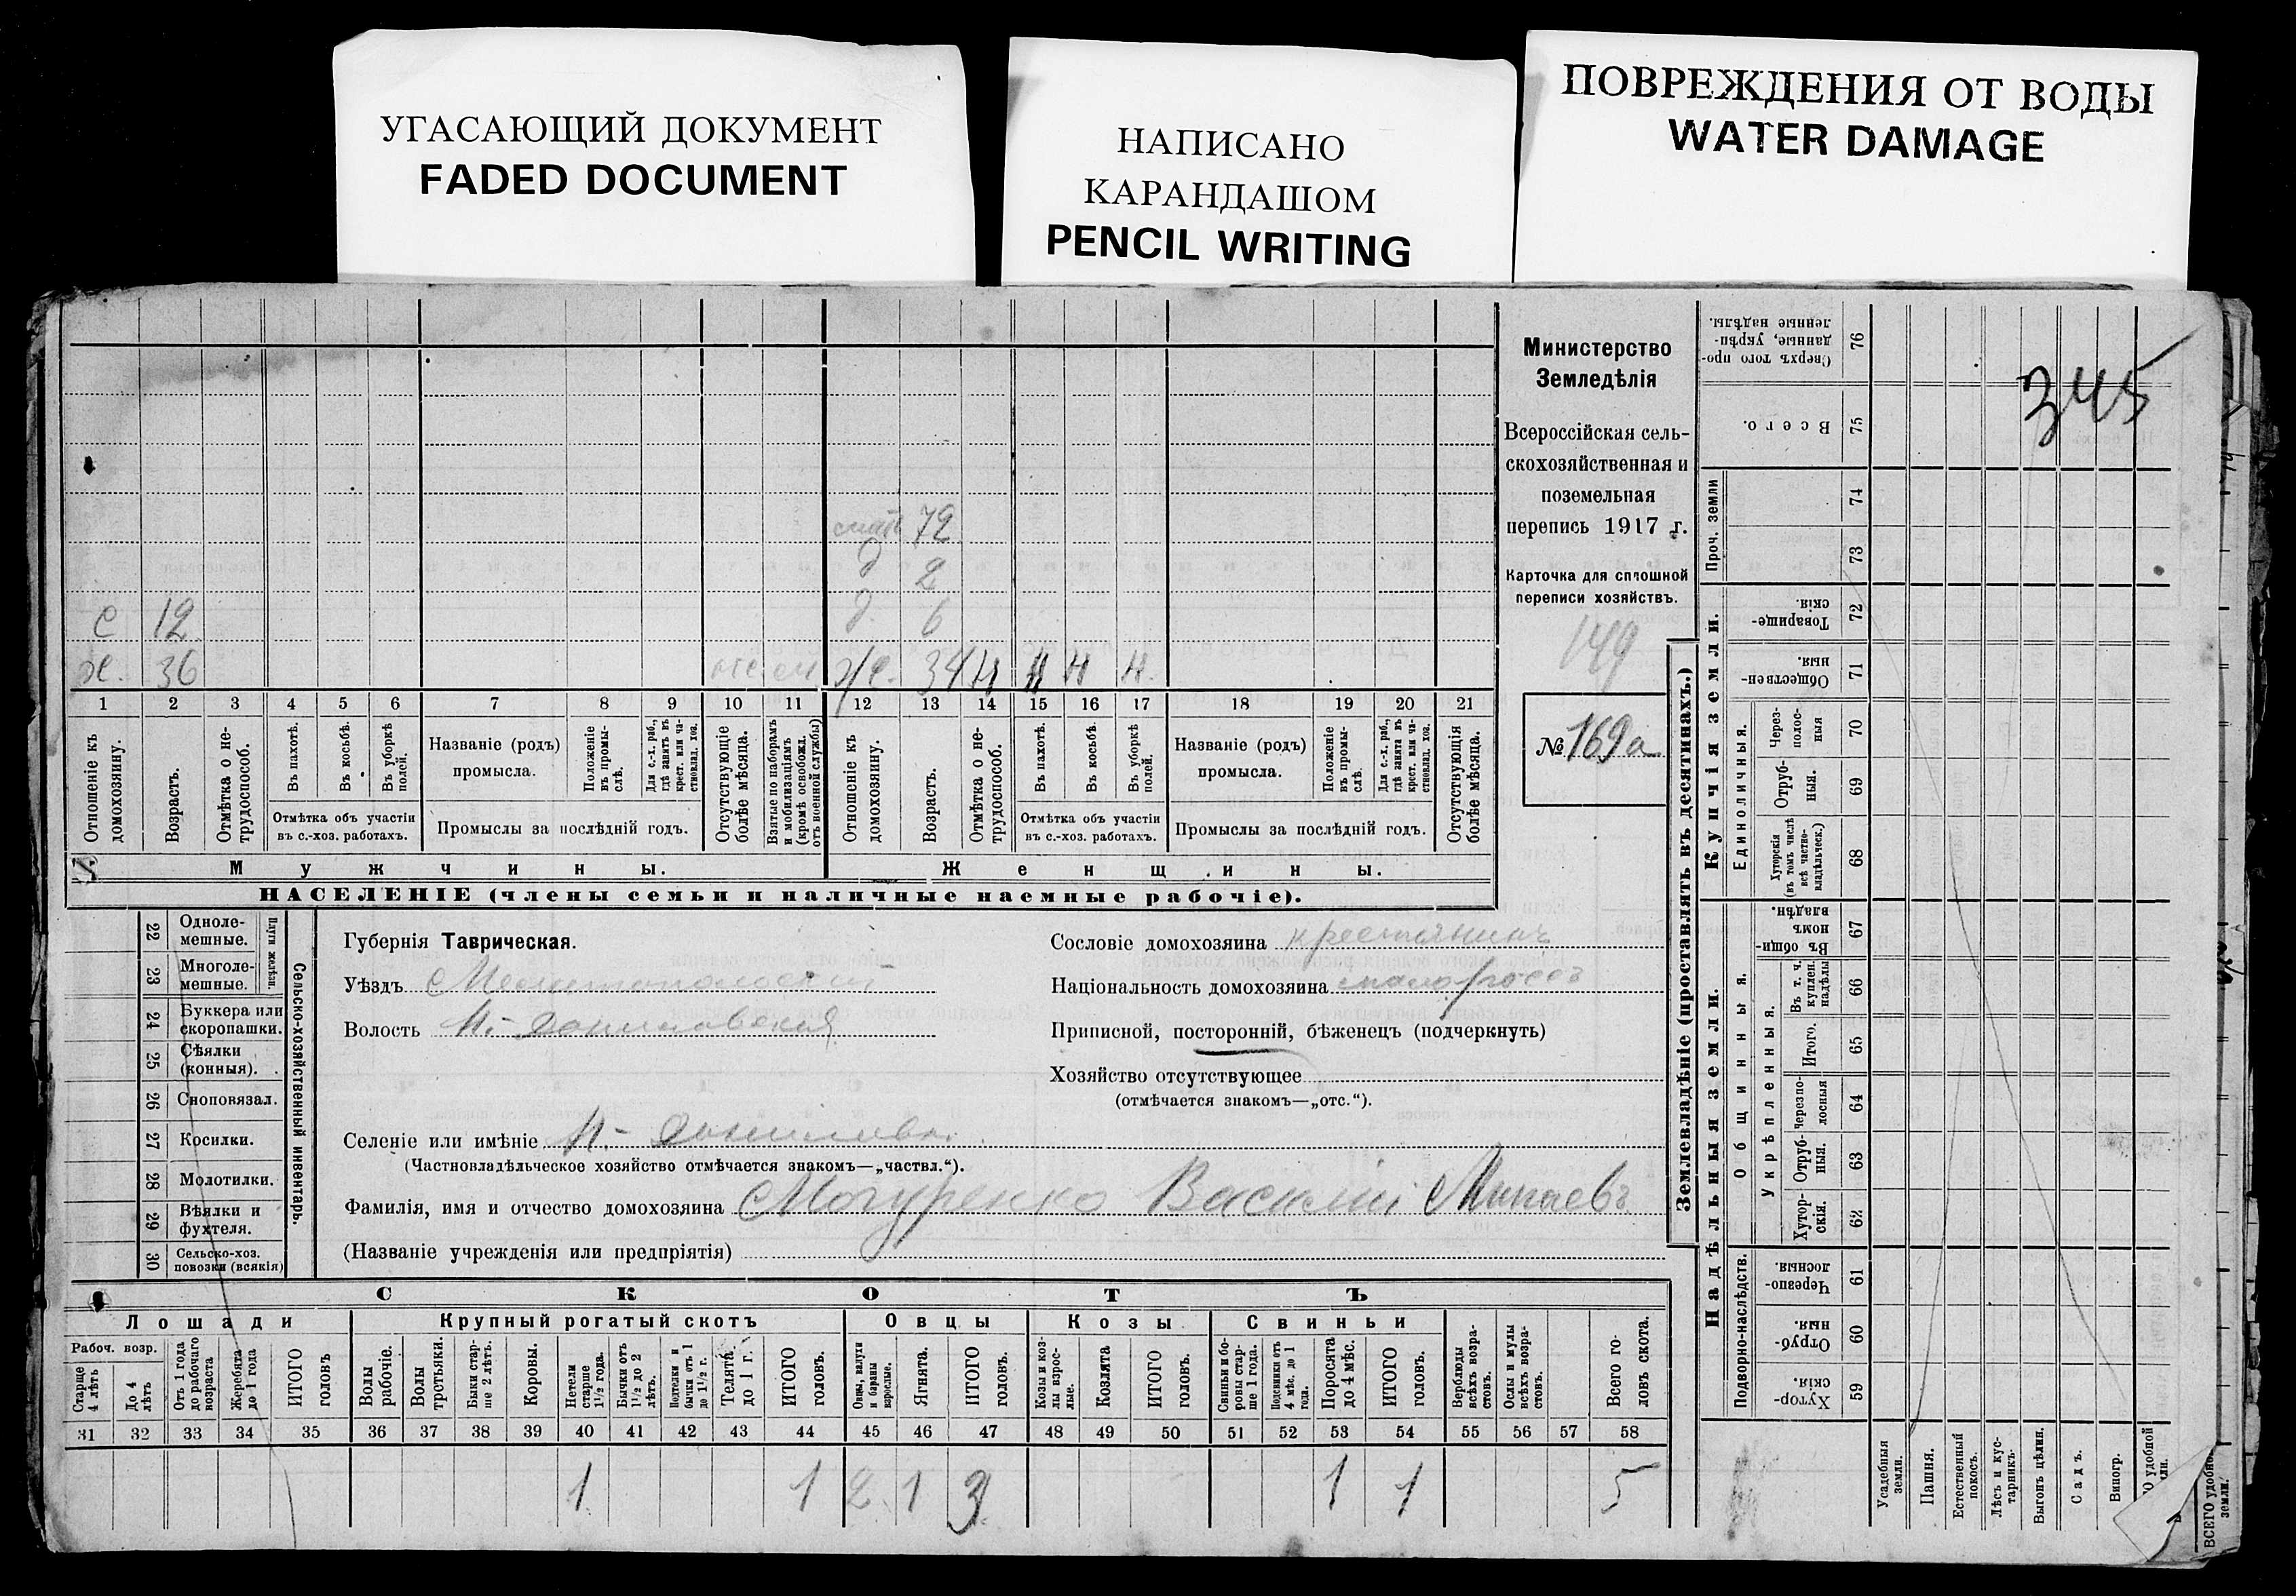 УГАСАЮЩИЙ ДОКУМЕНТ
FADED DOCUMENT
НАПИСАНО
КАРАНДАШОМ
PENCIL WRITING
ПОВРЕЖДЕНИЯ ОТ ВОДЫ
WATER DAMAGE
345
72
д 2
с 12 д. 6
х. 36 ж. 34 н н н н.
1 2 3 4 5 6 7 8 9 10 11 12 13 14 15 16 17 18 19 20 21
Отношеніе къ домохозяину.
Возрастъ.
Отмѣтка о не-трудоспособ.
Въ пахотѣ.
Въ косьбѣ.
Въ уборкѣ полей.
Отмѣтка объ участіи
въ с.-хоз. работахъ.
Названіе (родъ)
промысла.
Положеніе въ промы-слѣ.
Для с.-х. раб., гдѣ занятъ въ крест. или ча-стновлад. хоз.
Промыслы за послѣдній годъ.
Отсутствующіе болѣе мѣсяца.
Взятые по наборамъ и мобилизаціямъ (кромѣ освобожд. отъ военной службы)
Отношеніе къ домохозяину.
Возрастъ.
Отмѣтка о не-трудоспособ.
Въ пахотѣ.
Въ косьбѣ.
Въ уборкѣ полей.
Отмѣтка объ участіи
въ с.-хоз. работахъ.
Названіе (родъ)
промысла.
Положеніе въ промы-слѣ.
Для с.-х. раб., гдѣ занята въ крест. или ча-стновлад. хоз.
Промыслы за послѣдній годъ.
Отсутствующія болѣе мѣсяца.
Мужчины.
Женщины.
НАСЕЛЕНІЕ (члены семьи и наличные наемные рабочіе).
Министерство
Земледѣлія
Всероссійская сель-
скохозяйственная и
поземельная
перепись 1917 г.
Карточка для сплошной
переписи хозяйствъ.
149
№ 169а
22 Одноле-мешные.
23 Многоле-мешные.
Плуги желѣзн.
24 Буккера или скоропашки.
25 Сѣялки (конныя).
26 Сноповязал.
27 Косилки.
28 Молотилки.
29 Вѣялки и фухтеля.
30 Сельско-хоз. повозки (всякія)
Сельско-хозяйственный инвентарь.
Губернія Таврическая.
Уѣздъ Мелитопольскій
Волость Н.-Даниловская
Селеніе или имѣніе Н.-Даниловка
(Частновладѣльческое хозяйство отмѣчается знакомъ—„частвл.“).
Фамилія, имя и отчество домохозяина Могуренко Василій Минаевъ
(Названіе учрежденія или предпріятія)
Сословіе домохозяина крестьянинъ
Національность домохозяина малороссъ
Приписной, посторонній, бѣженецъ (подчеркнуть)
Хозяйство отсутствующее
(отмѣчается знакомъ—„отс.“).
СКОТЪ
Лошади
Крупный рогатый скотъ
Овцы
Козы.
Свиньи
Рабоч. возр.
Старше 4 лѣтъ
До 4 лѣтъ
Отъ 1 года до рабочаго возраста
Жеребята до 1 года
ИТОГО головъ
Волы рабочіе.
Волы третьяки.
Быки стар-ше 2 лѣтъ.
Коровы.
Нетели старше 1½ года.
Бычки отъ 1½ до 2 лѣтъ.
Подтелки и бычки отъ 1 до 1½ г.
Телята до 1 г.
ИТОГО головъ.
Овцы, валухи и бараны взрослые.
Ягнята.
ИТОГО головъ.
Козы и коз-лы взрос-лые.
Козлята
ИТОГО головъ.
Свиньи и бо-ровы стар-ше 1 года.
Подсвинки отъ 4 мѣс. до 1 года.
Поросята до 4 мѣс.
ИТОГО головъ.
Верблюды всѣхъ возра-стовъ.
Ослы и мулы всѣхъ возра-стовъ.
Всего го-ловъ скота.
31 32 33 34 35 36 37 38 39 40 41 42 43 44 45 46 47 48 49 50 51 52 53 54 55 56 57 58
1 1 2 1 3 1 1 5
Землевладѣніе (проставлять въ десятинахъ.)
Купчія земли.
Надѣльныя земли.
Сверхъ того про-данные, укрѣп-ленные надѣлы. 76
Всего. 75
Проч. земли
74
73
Товарище-скія. 72
Обществен-ныя. 71
Единоличныя.
Через-полос-ныя 70
Отруб-ныя. 69
Хуторскія (въ томъ числѣ всѣ частно-владѣльческ.) 68
Общинныя.
Въ общин-номъ владѣн. 67
Укрѣпленныя.
Въ т. ч. куплен. надѣлы 66
Итого. 65
Черезпо-лосныя 64
Отруб-ныя. 63
Хутор-скія. 62
Подворно-наслѣдств.
Черезпо-лосныя. 61
Отруб-ныя. 60
Хутор-скія. 59
Усадебныя земли.
Пашня.
Естественный покосъ.
Лѣсъ и кус-тарникъ.
Выгонъ цѣлин.
Садъ.
Виногр.
ВСЕГО удобной земли.